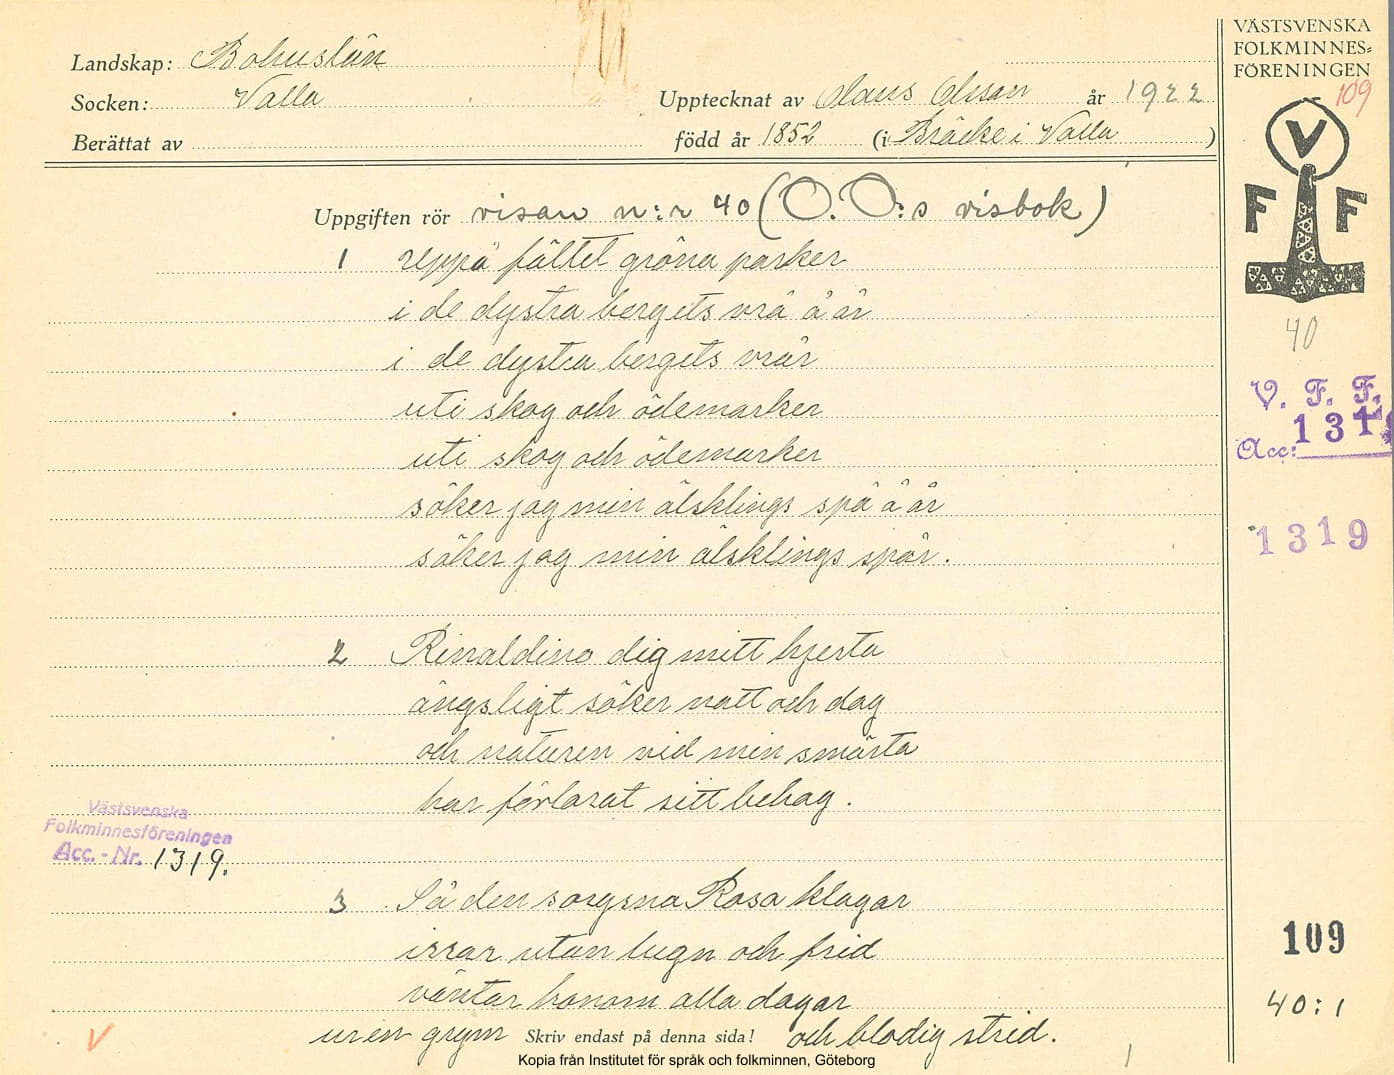 VÄSTSVENSKA
FOLKMINNES-
FÖRENINGEN
109
Landskap: Bohuslän
Socken: Valla
Upptecknat av Olaus Olsson år 1922
Berättat av
född år 1852 (i Bräcke i Valla)
V
F F
Uppgiften rör visan n:r 40 (O. O:s visbok)
1 uppå fältet gröna parker
i de dystra bergets vrå å år
i de dystra bergets vrår
uti skog och ödemarker
uti skog och ödemarker
söker jag min älsklings spå å år
söker jag min älsklings spår.
40
V. F. F.
Acc: 1319
1319
2 Rinaldino dig mitt hjerta
ängsligt söker natt och dag
och naturen vid min smärta
har förlorat sitt behag.
Västsvenska
Folkminnesföreningen
Acc.-Nr. 1319.
3 Så den sorgsna Rosa klagar
irrar utan lugn och frid
väntar honom alla dagar
ur en grym och blodig strid.
Skriv endast på denna sida!
109
40:1
Kopia från Institutet för språk och folkminnen, Göteborg